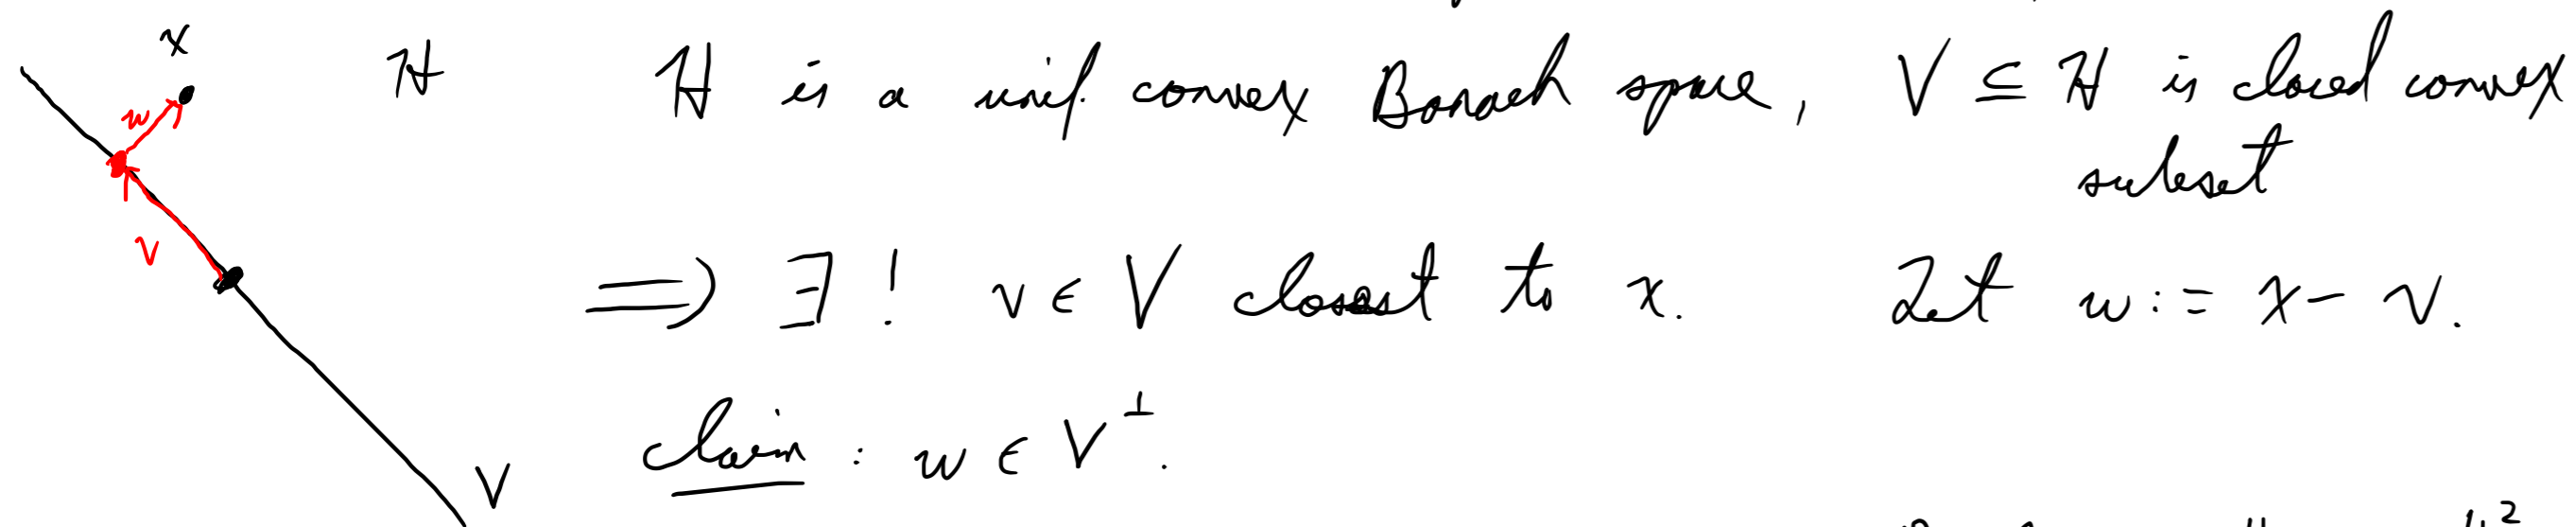 x
w
v
V
H H is a unif. convex Banach space, V ⊆ H is closed convex
subset
⟹ ∃! v ∈ V closest to x. Let w := x - v.
claim : w ∈ V^⊥.